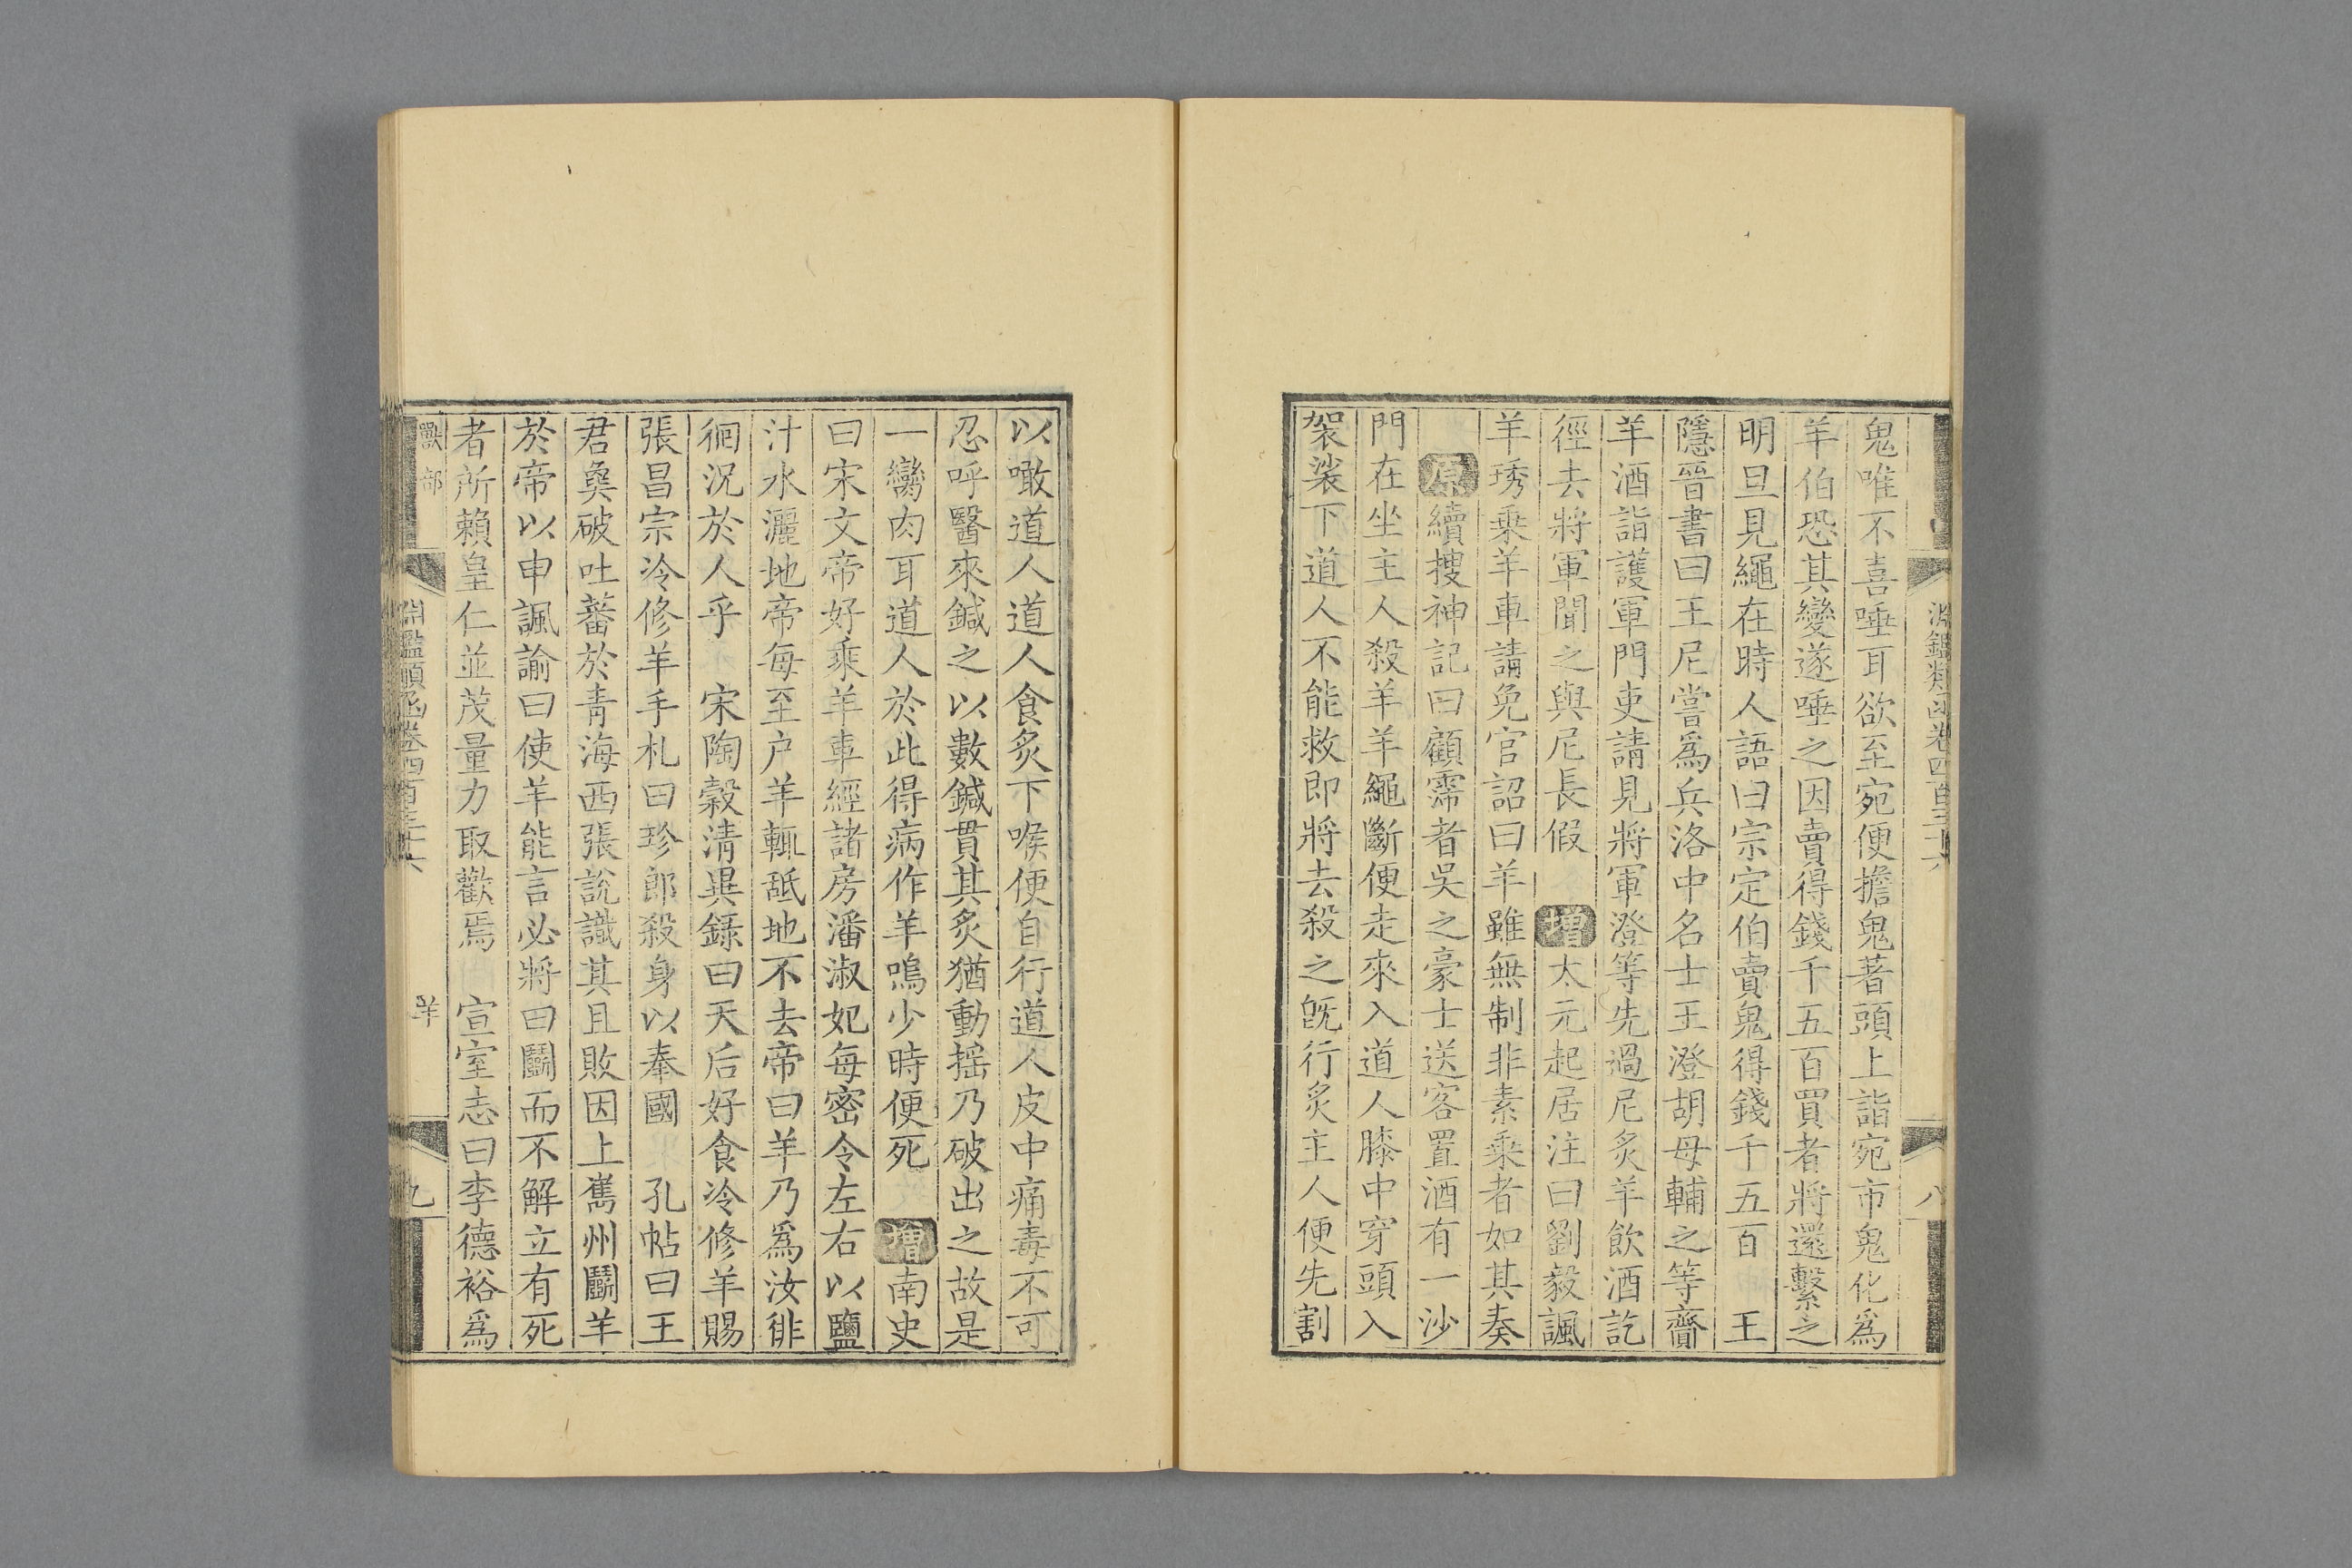 淵鑑類函卷四百三十六
八
鬼唯不喜唾耳欲至宛便擔鬼著頭上詣宛市鬼化爲
羊伯恐其變遂唾之因賣得錢千五百買者將還繫之
明旦見繩在時人語曰宗定伯賣鬼得錢千五百　王
隱晉書曰王尼嘗爲兵洛中名士王澄胡母輔之等齎
羊酒詣護軍門吏請見將軍澄等先過尼炙羊飲酒訖
徑去將軍聞之與尼長假　增太元起居注曰劉毅諷
羊琇乘羊車請免官詔曰羊雖無制非素乘者如其奏
原續搜神記曰顧霈者吳之豪士送客置酒有一沙
門在坐主人殺羊羊繩斷便走來入道人膝中穿頭入
袈裟下道人不能救即將去殺之旣行炙主人便先割
以噉道人道人食炙下喉便自行道人皮中痛毒不可
忍呼醫來鍼之以數鍼貫其炙猶動搖乃破出之故是
一臠肉耳道人於此得病作羊鳴少時便死　增南史
曰宋文帝好乘羊車經諸房潘淑妃每密令左右以鹽
汁水灑地帝每至户羊輒舐地不去帝曰羊乃爲汝徘
徊況於人乎　宋陶穀清異錄曰天后好食冷修羊賜
張昌宗冷修羊手札曰珍郎殺身以奉國　孔帖曰王
君㚟破吐蕃於青海西張說識其且敗因上巂州鬬羊
於帝以申諷諭曰使羊能言必將曰鬬而不解立有死
者所賴皇仁並茂量力取歡焉　宣室志曰李德裕爲
獸部
淵鑑類函卷四百三十六
羊
九